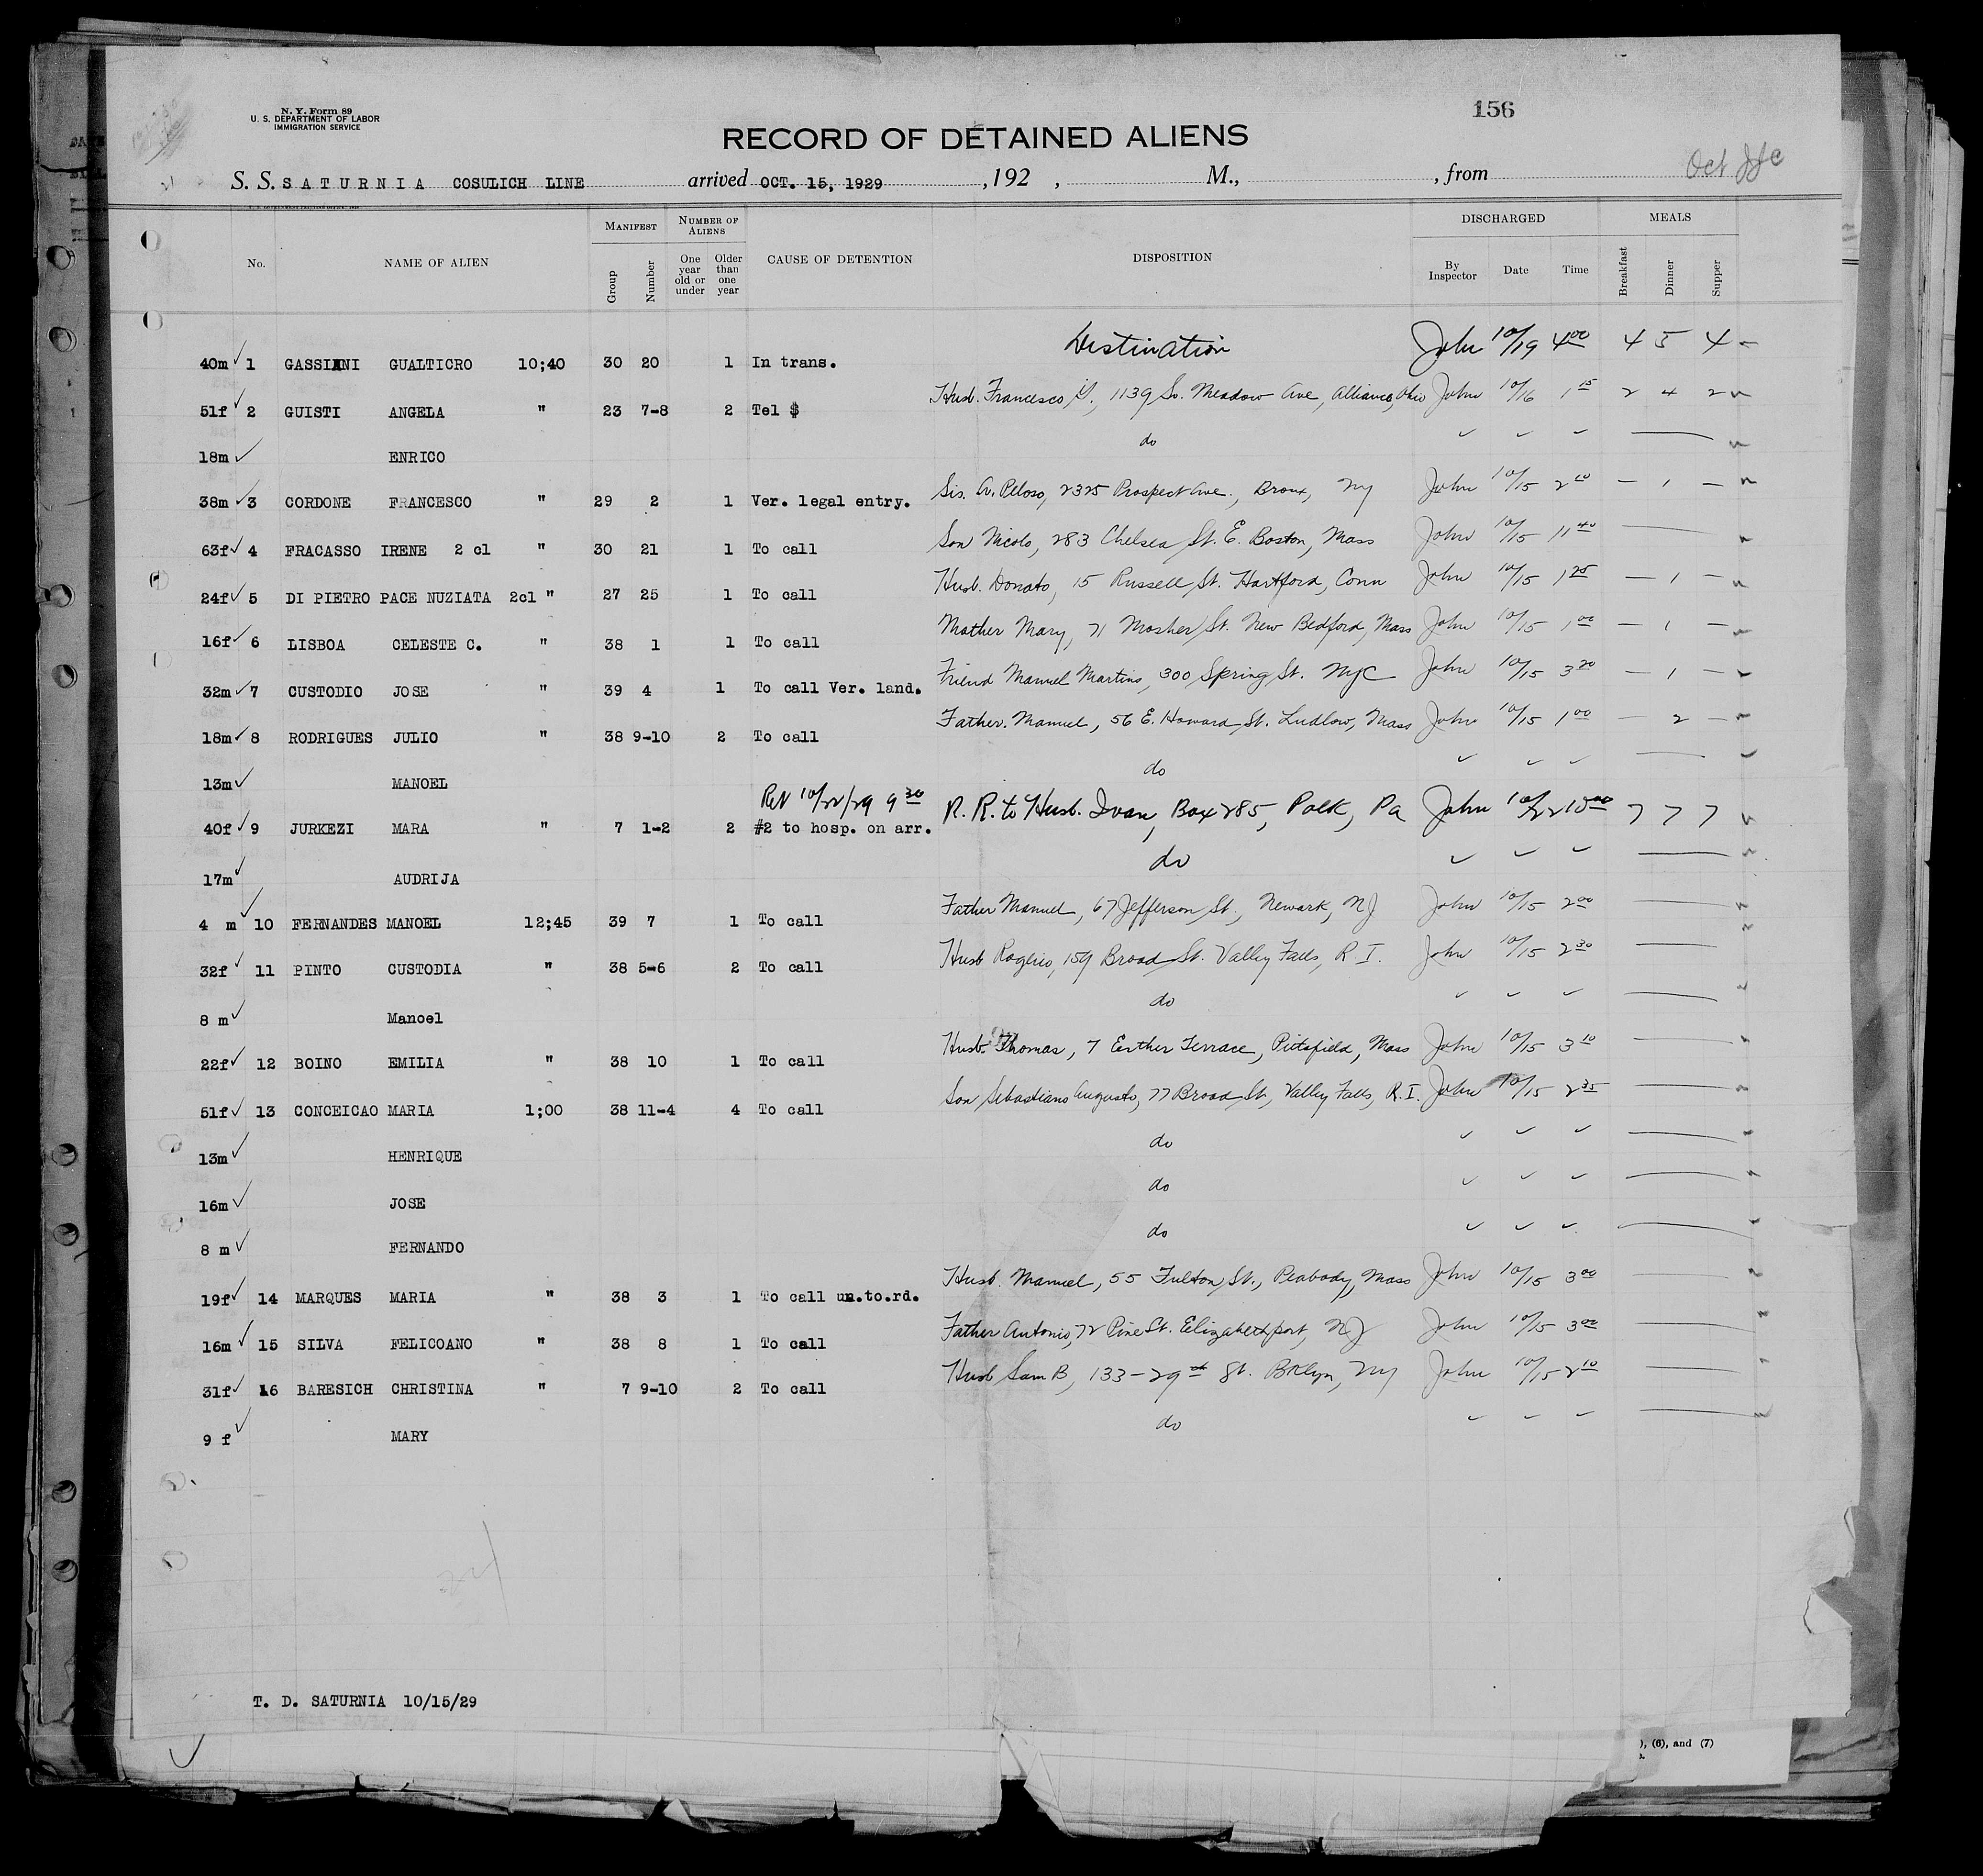 156
N. Y. Form 89
U. S. DEPARTMENT OF LABOR
IMMIGRATION SERVICE
RECORD OF DETAINED ALIENS
Oct
S. S. SATURNIA COSULICH LINE arrived OCT. 15, 1929, 192 , M., , from
No. NAME OF ALIEN MANIFEST Group Number NUMBER OF ALIENS One year old or under Older than one year CAUSE OF DETENTION DISPOSITION DISCHARGED By Inspector Date Time MEALS Breakfast Dinner Supper
40m ✓ 1 GASSIANI GUALTICRO 10;40 30 20 1 In trans. Destination John 10/19 4 00 4 5 4
51f ✓ 2 GUISTI ANGELA " 23 7-8 2 Tel $ Husb. Francesco G., 1139 So. Meadow Ave, Alliance, Ohio John 10/16 1 15 2 4 2
18m ✓ ENRICO do ✓ ✓ ✓ —
38m ✓ 3 CORDONE FRANCESCO " 29 2 1 Ver. legal entry. Sis. A. Peloso, 2325 Prospect Ave., Bronx, NY John 10/15 2 00 — 1 —
63f ✓ 4 FRACASSO IRENE 2 cl " 30 21 1 To call Son Nicolo, 283 Chelsea St. E. Boston, Mass John 10/15 11 40 —
24f ✓ 5 DI PIETRO PACE NUZIATA 2cl " 27 25 1 To call Husb. Donato, 15 Russell St. Hartford, Conn John 10/15 1 25 — 1 —
16f ✓ 6 LISBOA CELESTE C. " 38 1 1 To call Mother Mary, 71 Mosher St. New Bedford, Mass John 10/15 1 00 — 1 —
32m ✓ 7 CUSTODIO JOSE " 39 4 1 To call Ver. land. Friend Manuel Martins, 300 Spring St. NYC John 10/15 3 20 — 1 —
18m ✓ 8 RODRIGUES JULIO " 38 9-10 2 To call Father. Manuel, 56 E. Howard St. Ludlow, Mass John 10/15 1 00 — 2 —
13m ✓ MANOEL do ✓ ✓ ✓ —
Ret 10/22/29 9 30
40f ✓ 9 JURKEZI MARA " 7 1-2 2 #2 to hosp. on arr. R. R. to Husb. Ivan, Box 285, Polk, Pa John 10/22 10 00 7 7 7
17m ✓ AUDRIJA do ✓ ✓ ✓ —
4 m ✓ 10 FERNANDES MANOEL 12;45 39 7 1 To call Father Manuel, 67 Jefferson St., Newark, NJ John 10/15 2 00 —
32f ✓ 11 PINTO CUSTODIA " 38 5-6 2 To call Husb Rogerio, 159 Broad St. Valley Falls, R. I. John 10/15 2 30 —
8 m ✓ Manoel do ✓ ✓ ✓ —
22f ✓ 12 BOINO EMILIA " 38 10 1 To call Husb. Thomas, 7 Esther Terrace, Pittsfield, Mass John 10/15 3 10 —
51f ✓ 13 CONCEICAO MARIA 1;00 38 11-4 4 To call Son Sebastiano Augusto, 77 Broad St, Valley Falls, R. I. John 10/15 2 35 —
13m ✓ HENRIQUE do ✓ ✓ ✓ —
16m ✓ JOSE do ✓ ✓ ✓ —
8 m ✓ FERNANDO do ✓ ✓ ✓ —
19f ✓ 14 MARQUES MARIA " 38 3 1 To call un.to.rd. Husb. Manuel, 55 Fulton St., Peabody, Mass John 10/15 3 00 —
16m ✓ 15 SILVA FELICOANO " 38 8 1 To call Father Antonio, 72 Pine St. Elizabethport, NJ John 10/15 3 00 —
31f ✓ 16 BARESICH CHRISTINA " 7 9-10 2 To call Husb Sam B, 133-29th St. Bklyn, NY John 10/15 2 10 —
9 f ✓ MARY do ✓ ✓ ✓ —
T. D. SATURNIA 10/15/29
), (6), and (7)